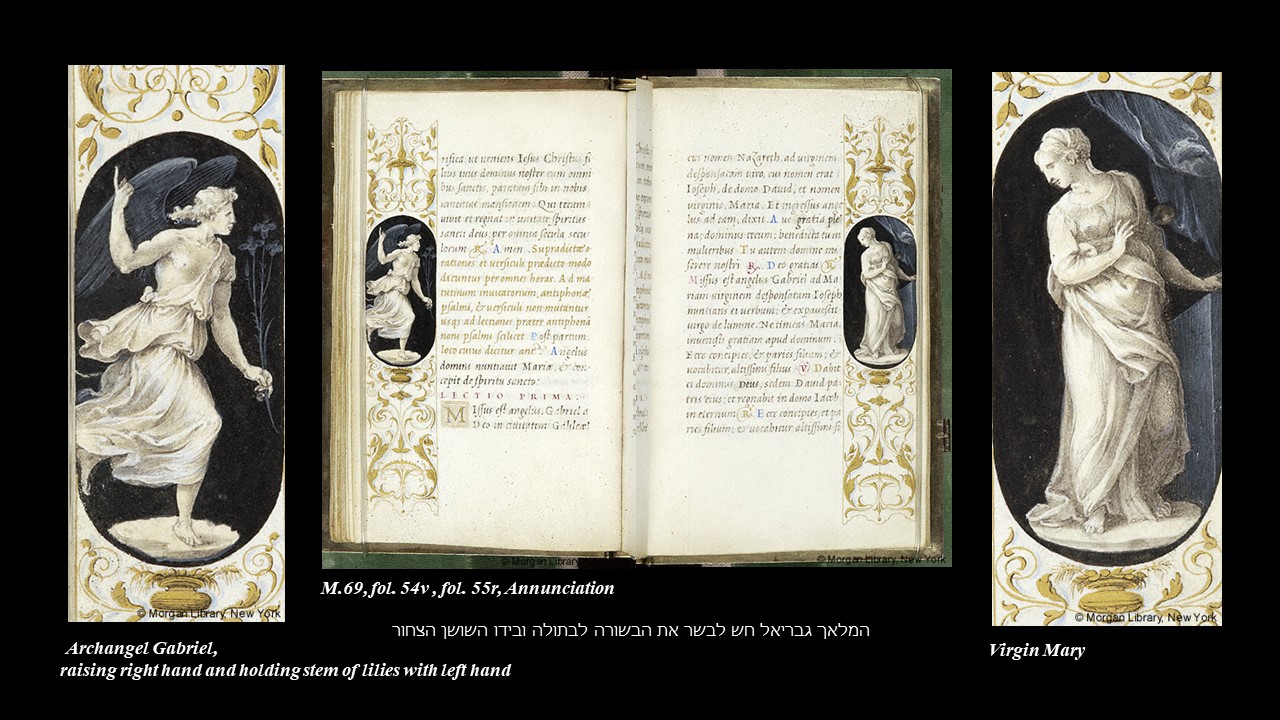 rifica, ut ueniens Iesus Christus fi
lius tuus dominus noster cum omni
bus sanctis, paratam sibi in nobis
inueniat mansionem. Qui tecum
uiuit et regnat in unitate spiritus
sancti deus, per omnia secula secu
lorum R. Amen. Supradictæ o
rationes et uersiculi prædicto modo
dicuntur per omnes horas. Ad ma
tutinum inuitatorium, antiphonæ
psalmi, & uersiculi non mutantur
usq; ad lectiones præter antiphonã
noni psalmi scilicet Post partum.
loco cuius dicitur ant. Angelus
domini nuntiauit Mariæ, & con-
cepit de spiritu sancto:
LECTIO PRIMA.
Missus est angelus Gabriel a
Deo in ciuitatem Galileæ
cui nomen Nazareth, ad uirginem
desponsatam uiro, cui nomen erat
Ioseph, de domo Dauid, et nomen
uirginis, Maria. Et ingressus ange
lus ad eam, dixit. Aue gratia ple
na, dominus tecum: benedicta tu in
mulieribus Tu autem domine mi-
serere nostri R. Deo gratias R.
Missus est angelus Gabriel ad Ma
riam uirginem desponsatam Ioseph
nuntians ei uerbum; & expauescit
uirgo de lumine. Ne timeas Maria,
inuenisti gratiam apud dominum.
Ecce concipies, & paries filium; &
uocabitur, altissimi filius V. Dabit
ei dominus Deus, sedem Dauid pa-
tris eius; et regnabit in domo Iacob
in eternum R. Ecce concipies; et pa
ries filium; & uocabitur altissimi fi
© Morgan Library, New York
© Morgan Library
© Morgan Library, New York
© Morgan Library, New York
M.69, fol. 54v , fol. 55r, Annunciation
המלאך גבריאל חש לבשר את הבשורה לבתולה ובידו השושן הצחור
Archangel Gabriel,
raising right hand and holding stem of lilies with left hand
Virgin Mary